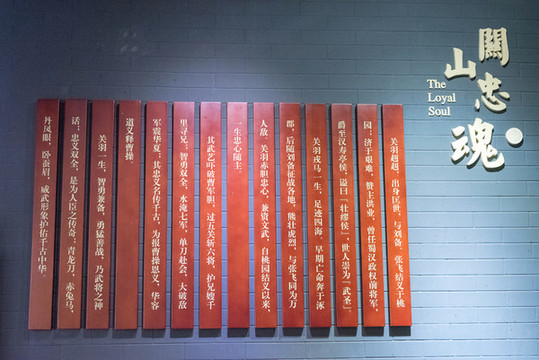 關山忠魂
The
Loyal
Soul
关羽赳赳，出身匡世，与刘备、张飞结义于桃
园；济于艰难，赞主洪业，曾任蜀汉政权前将军，
爵至汉寿亭侯，谥曰『壮缪侯』，世人崇为『武圣』。
关羽戎马一生，足迹四海，早期亡命奔于涿
郡，后随刘备征战各地，熊壮虎烈，与张飞同为万
人敌，关羽赤胆忠心，兼资文武，自桃园结义以来，
一生忠心随主。
其武艺吓破曹军胆，过五关斩六将，护兄嫂千
里寻兄；智勇双全，水淹七军，单刀赴会，大破敌
军震华夏；其忠义名传千古，为报曹操恩义，华容
道义释曹操。
关羽一生，智勇兼备，勇猛善战，乃武将之神
话；忠义双全，是为人臣之传奇；青龙刀，赤兔马，
丹凤眼，卧蚕眉，威武形象护佑千古中华。